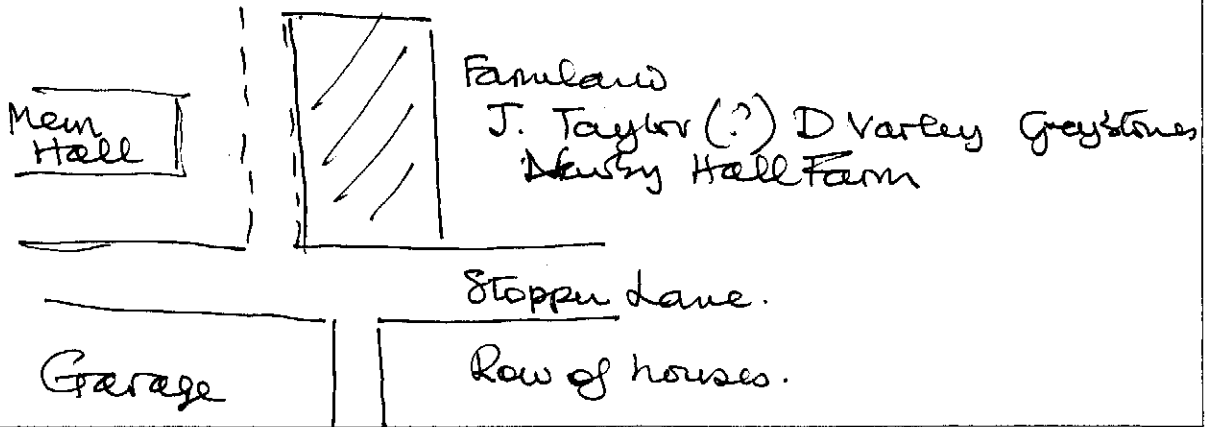 Farmland
Mem
Hall
J. Taylor (?) D Varley Greystones
Newby Hall Farm
Stopper Lane.
Garage
Row of houses.